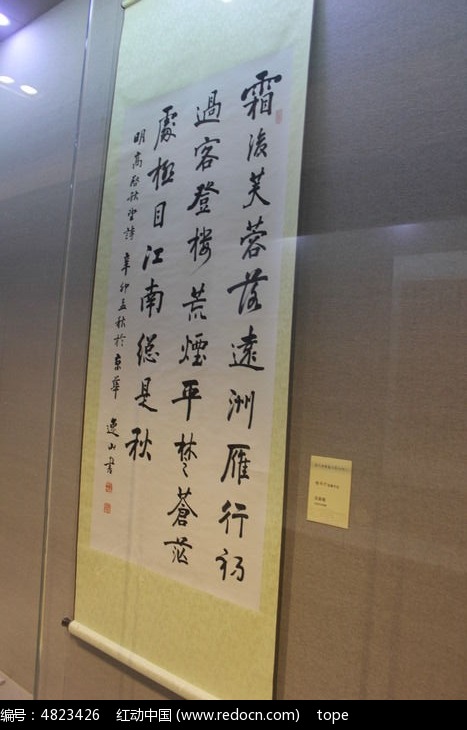 霜後芙蓉落遠洲雁行初
過客登楼荒煙平楚蒼茫
處極目江南總是秋
明高啟秋望詩 辛卯孟秋於京華 山书
编号：4823426 红动中国 (www.redocn.com) tope